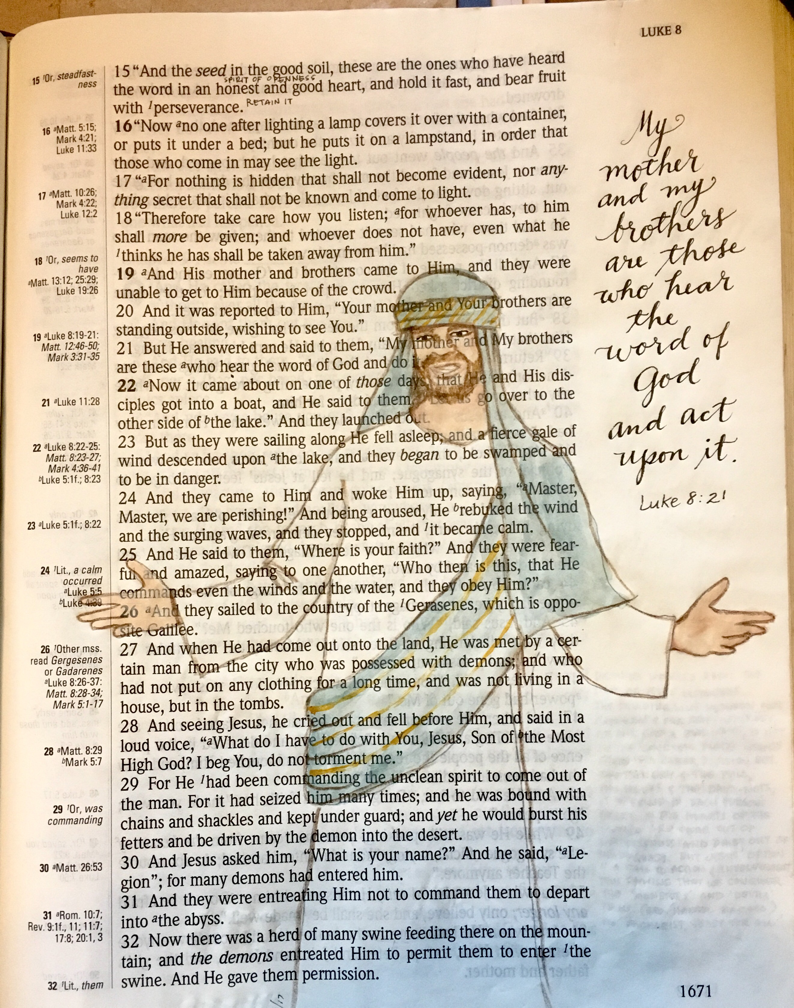 LUKE 8
15 ˡOr, steadfast-
ness
16 ᵃMatt. 5:15;
Mark 4:21;
Luke 11:33
17 ᵃMatt. 10:26;
Mark 4:22;
Luke 12:2
18 ˡOr, seems to
have
ᵃMatt. 13:12; 25:29;
Luke 19:26
19 ᵃLuke 8:19-21:
Matt. 12:46-50;
Mark 3:31-35
21 ᵃLuke 11:28
22 ᵃLuke 8:22-25:
Matt. 8:23-27;
Mark 4:36-41
ᵇLuke 5:1f.; 8:23
23 ᵃLuke 5:1f.; 8:22
24 ˡLit., a calm
occurred
ᵃLuke 5:5
ᵇLuke 4:39
26 ˡOther mss.
read Gergesenes
or Gadarenes
ᵃLuke 8:26-37:
Matt. 8:28-34;
Mark 5:1-17
28 ᵃMatt. 8:29
ᵇMark 5:7
29 ˡOr, was
commanding
30 ᵃMatt. 26:53
31 ᵃRom. 10:7;
Rev. 9:1f., 11; 11:7;
17:8; 20:1, 3
32 ˡLit., them
15 “And the seed in the good soil, these are the ones who have heard
SPIRIT OF OPENNESS
the word in an honest and good heart, and hold it fast, and bear fruit
with ˡperseverance. RETAIN IT
16 “Now ᵃno one after lighting a lamp covers it over with a container,
or puts it under a bed; but he puts it on a lampstand, in order that
those who come in may see the light.
17 “ᵃFor nothing is hidden that shall not become evident, nor any-
thing secret that shall not be known and come to light.
18 “Therefore take care how you listen; ᵃfor whoever has, to him
shall more be given; and whoever does not have, even what he
ˡthinks he has shall be taken away from him.”
19 ᵃAnd His mother and brothers came to Him, and they were
unable to get to Him because of the crowd.
20 And it was reported to Him, “Your mother and Your brothers are
standing outside, wishing to see You.”
21 But He answered and said to them, “My mother and My brothers
are these ᵃwho hear the word of God and do
22 ᵃNow it came about on one of those days, that He and His dis-
ciples got into a boat, and He said to them, go over to the
other side of ᵇthe lake.” And they launched out.
23 But as they were sailing along He fell asleep; and a fierce gale of
wind descended upon ᵃthe lake, and they began to be swamped and
to be in danger.
24 And they came to Him and woke Him up, saying, “ᵃMaster,
Master, we are perishing!” And being aroused, He ᵇrebuked the wind
and the surging waves, and they stopped, and ˡit became calm.
25 And He said to them, “Where is your faith?” And they were fear-
ful and amazed, saying to one another, “Who then is this, that He
commands even the winds and the water, and they obey Him?”
26 ᵃAnd they sailed to the country of the ˡGerasenes, which is oppo-
site Galilee.
27 And when He had come out onto the land, He was met by a cer-
tain man from the city who was possessed with demons; and who
had not put on any clothing for a long time, and was not living in a
house, but in the tombs.
28 And seeing Jesus, he cried out and fell before Him, and said in a
loud voice, “ᵃWhat do I have to do with You, Jesus, Son of ᵇthe Most
High God? I beg You, do not torment me.”
29 For He ˡhad been commanding the unclean spirit to come out of
the man. For it had seized him many times; and he was bound with
chains and shackles and kept under guard; and yet he would burst his
fetters and be driven by the demon into the desert.
30 And Jesus asked him, “What is your name?” And he said, “ᵃLe-
gion”; for many demons had entered him.
31 And they were entreating Him not to command them to depart
into ᵃthe abyss.
32 Now there was a herd of many swine feeding there on the moun-
tain; and the demons entreated Him to permit them to enter ˡthe
swine. And He gave them permission.
My
mother
and my
brothers
are those
who hear
the
word of
God
and act
upon it.
Luke 8:21
1671